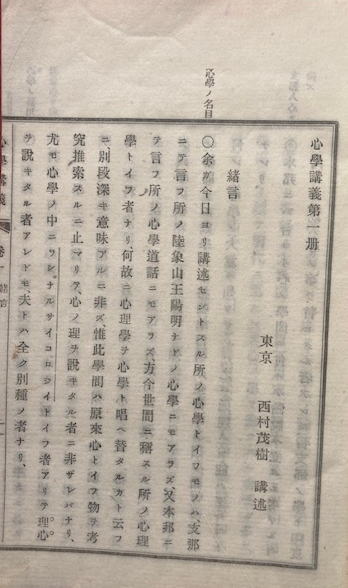 心學講義第一册
東京　西村茂樹　講述
緒言
心學ノ名目
〇余ガ今日ヨリ講述セントスル所ノ心學トイフモノハ支那
ニテ言フ所ノ陸象山王陽明ナドノ心學ニモアラズ、又本邦ニ
テ言フ所ノ心學道話ニモアラズ、方今世間ニ稱スル所ノ心理
學トイフ者ナリ、何故ニ心理學ヲ心學ト唱ヘ替タルカト云フ
ニ、別段深キ意味アルニ非ズ、惟此學問ハ原來心トイフ物ヲ考
究推索スルニ止マリテ、心ノ理ヲ說キタル者ニ非ザレバナリ、
尤モ心學ノ中ニラショナルサイコロジイトイフ者アリテ理心
ヲ說キタル者アレドモ、夫トハ全ク別種ノ者ナリ、
心學講義
卷一
緒言